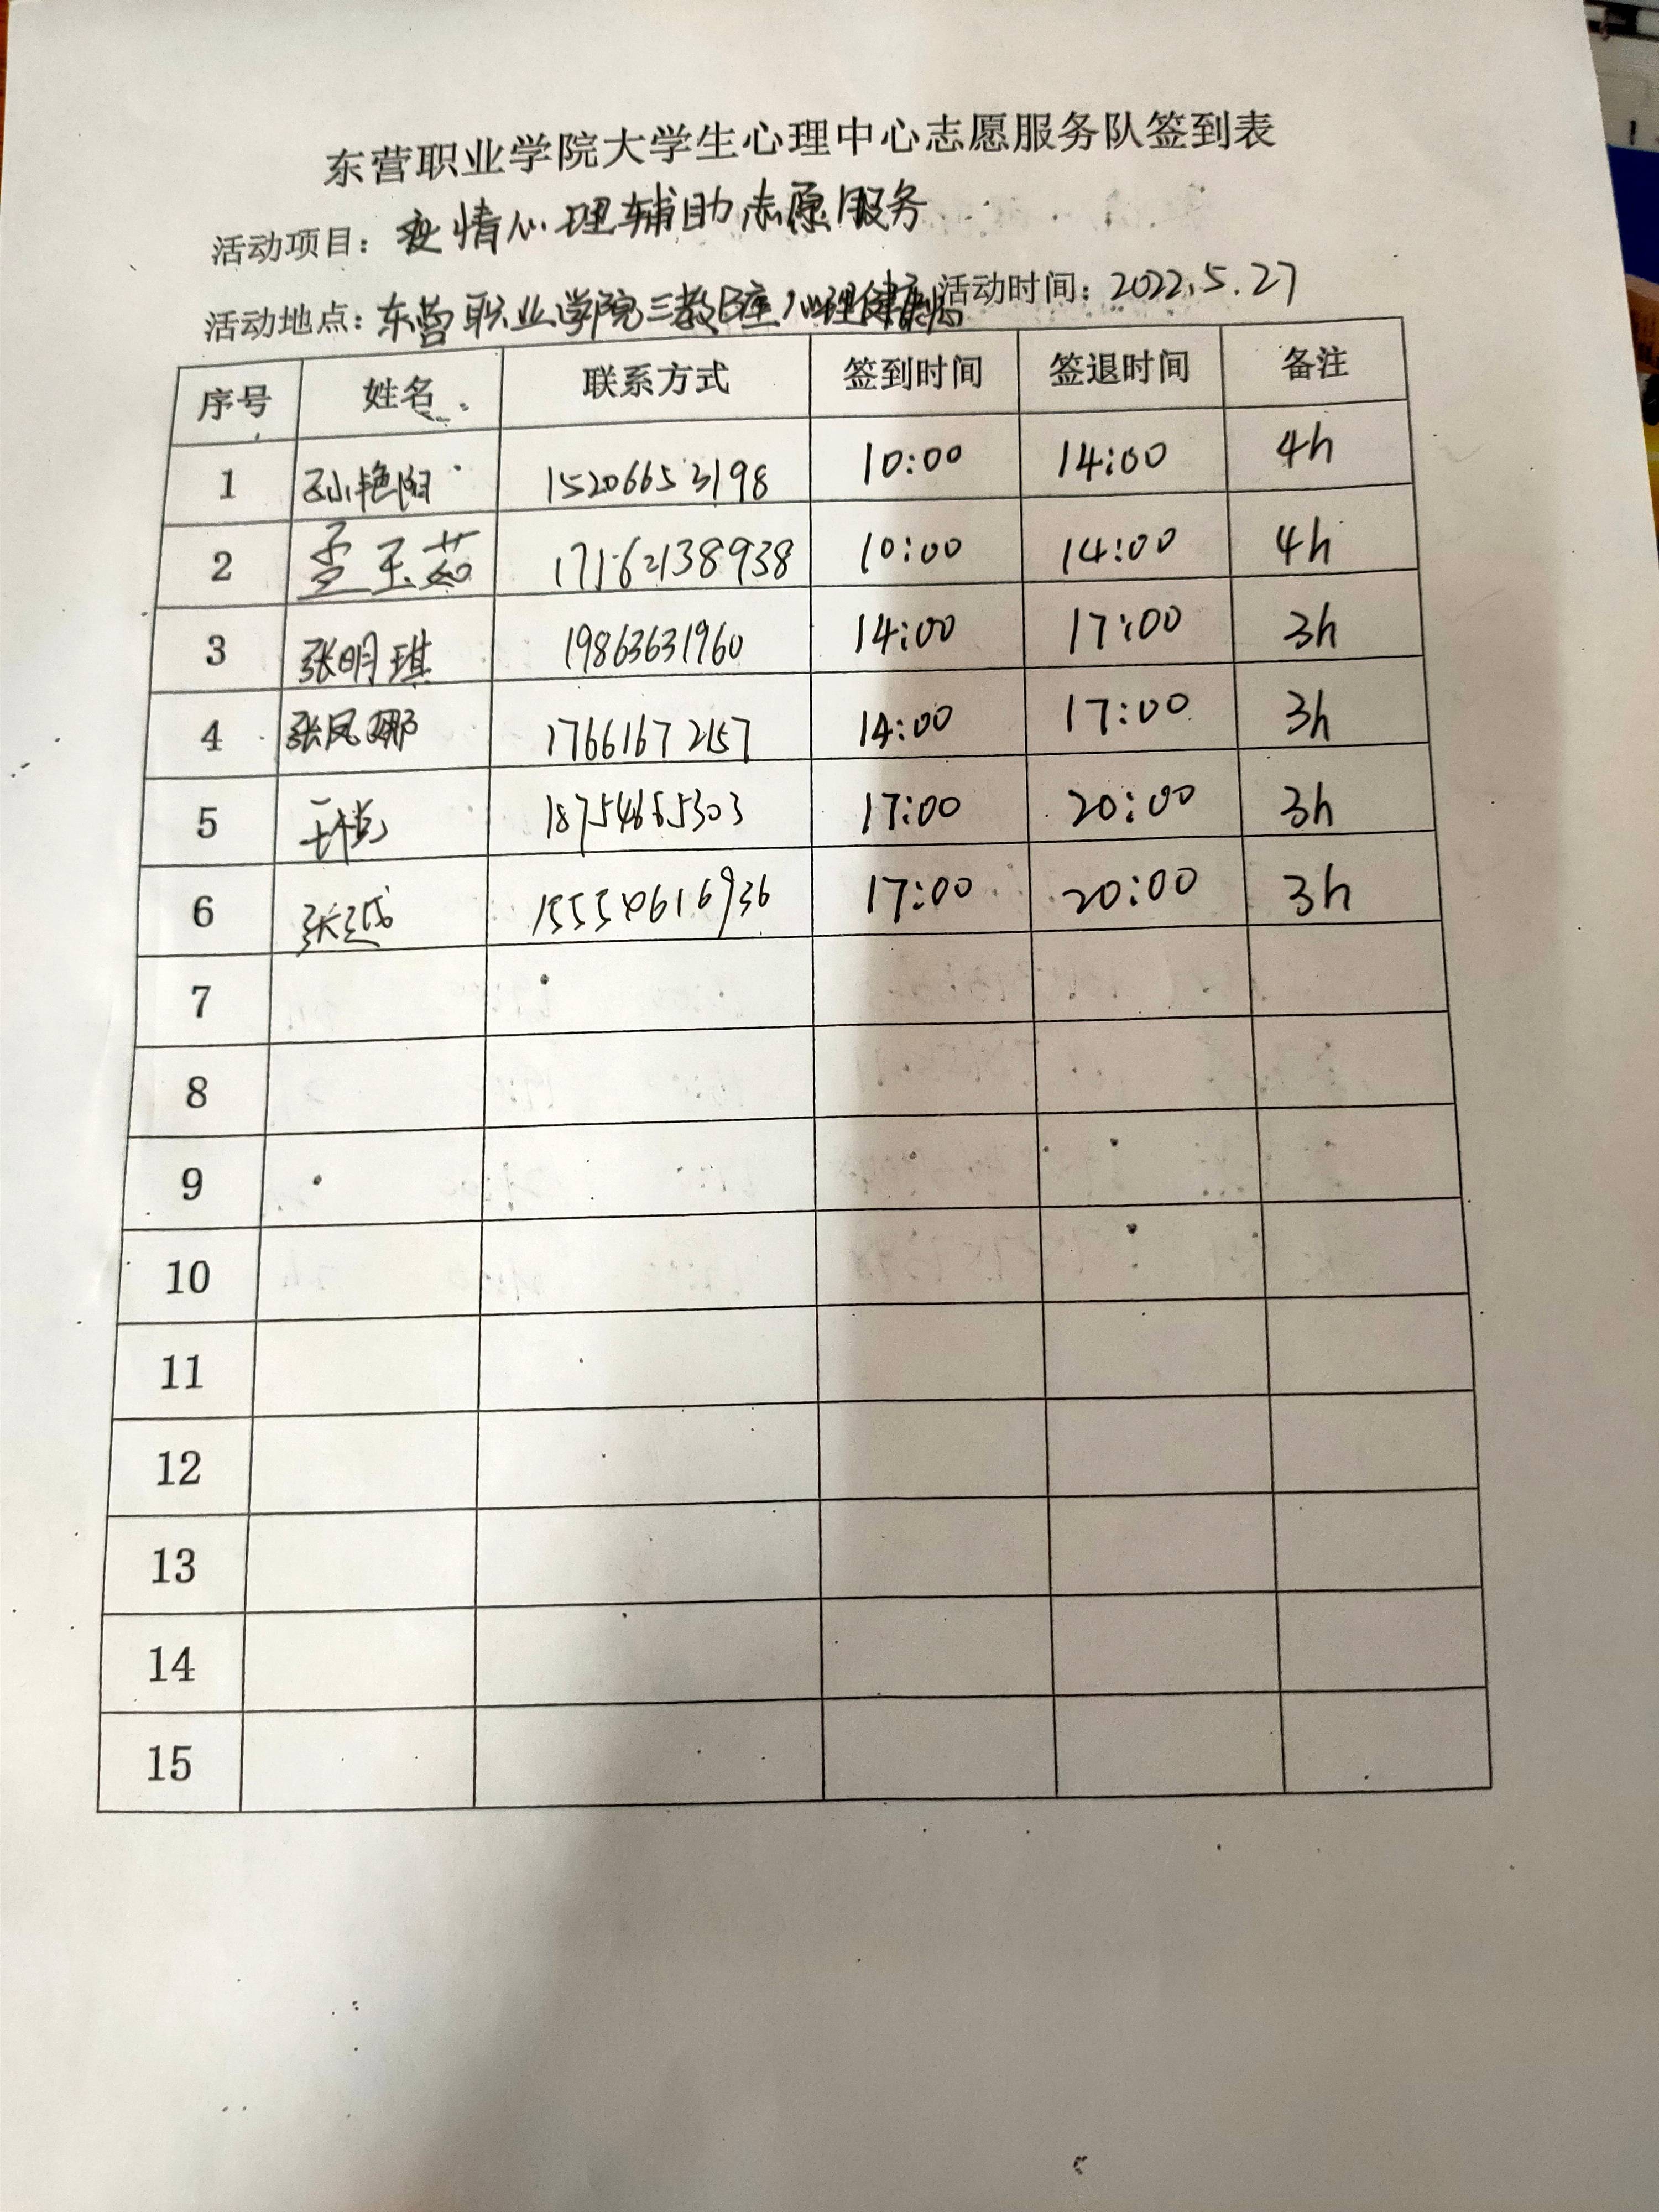 东营职业学院大学生心理中心志愿服务队签到表
活动项目：疫情心理辅助志愿服务
活动地点：东营职业学院三教B座心理健康 活动时间：2022.5.27
序号 姓名 联系方式 签到时间 签退时间 备注
1 孙艳阳 15206653198 10:00 14:00 4h
2 孟玉茹 17562138938 10:00 14:00 4h
3 张明琪 19863631960 14:00 17:00 3h
4 张凤娜 17661672157 14:00 17:00 3h
5 17:00 20:00 3h
6 17:00 20:00 3h
7
8
9
10
11
12
13
14
15